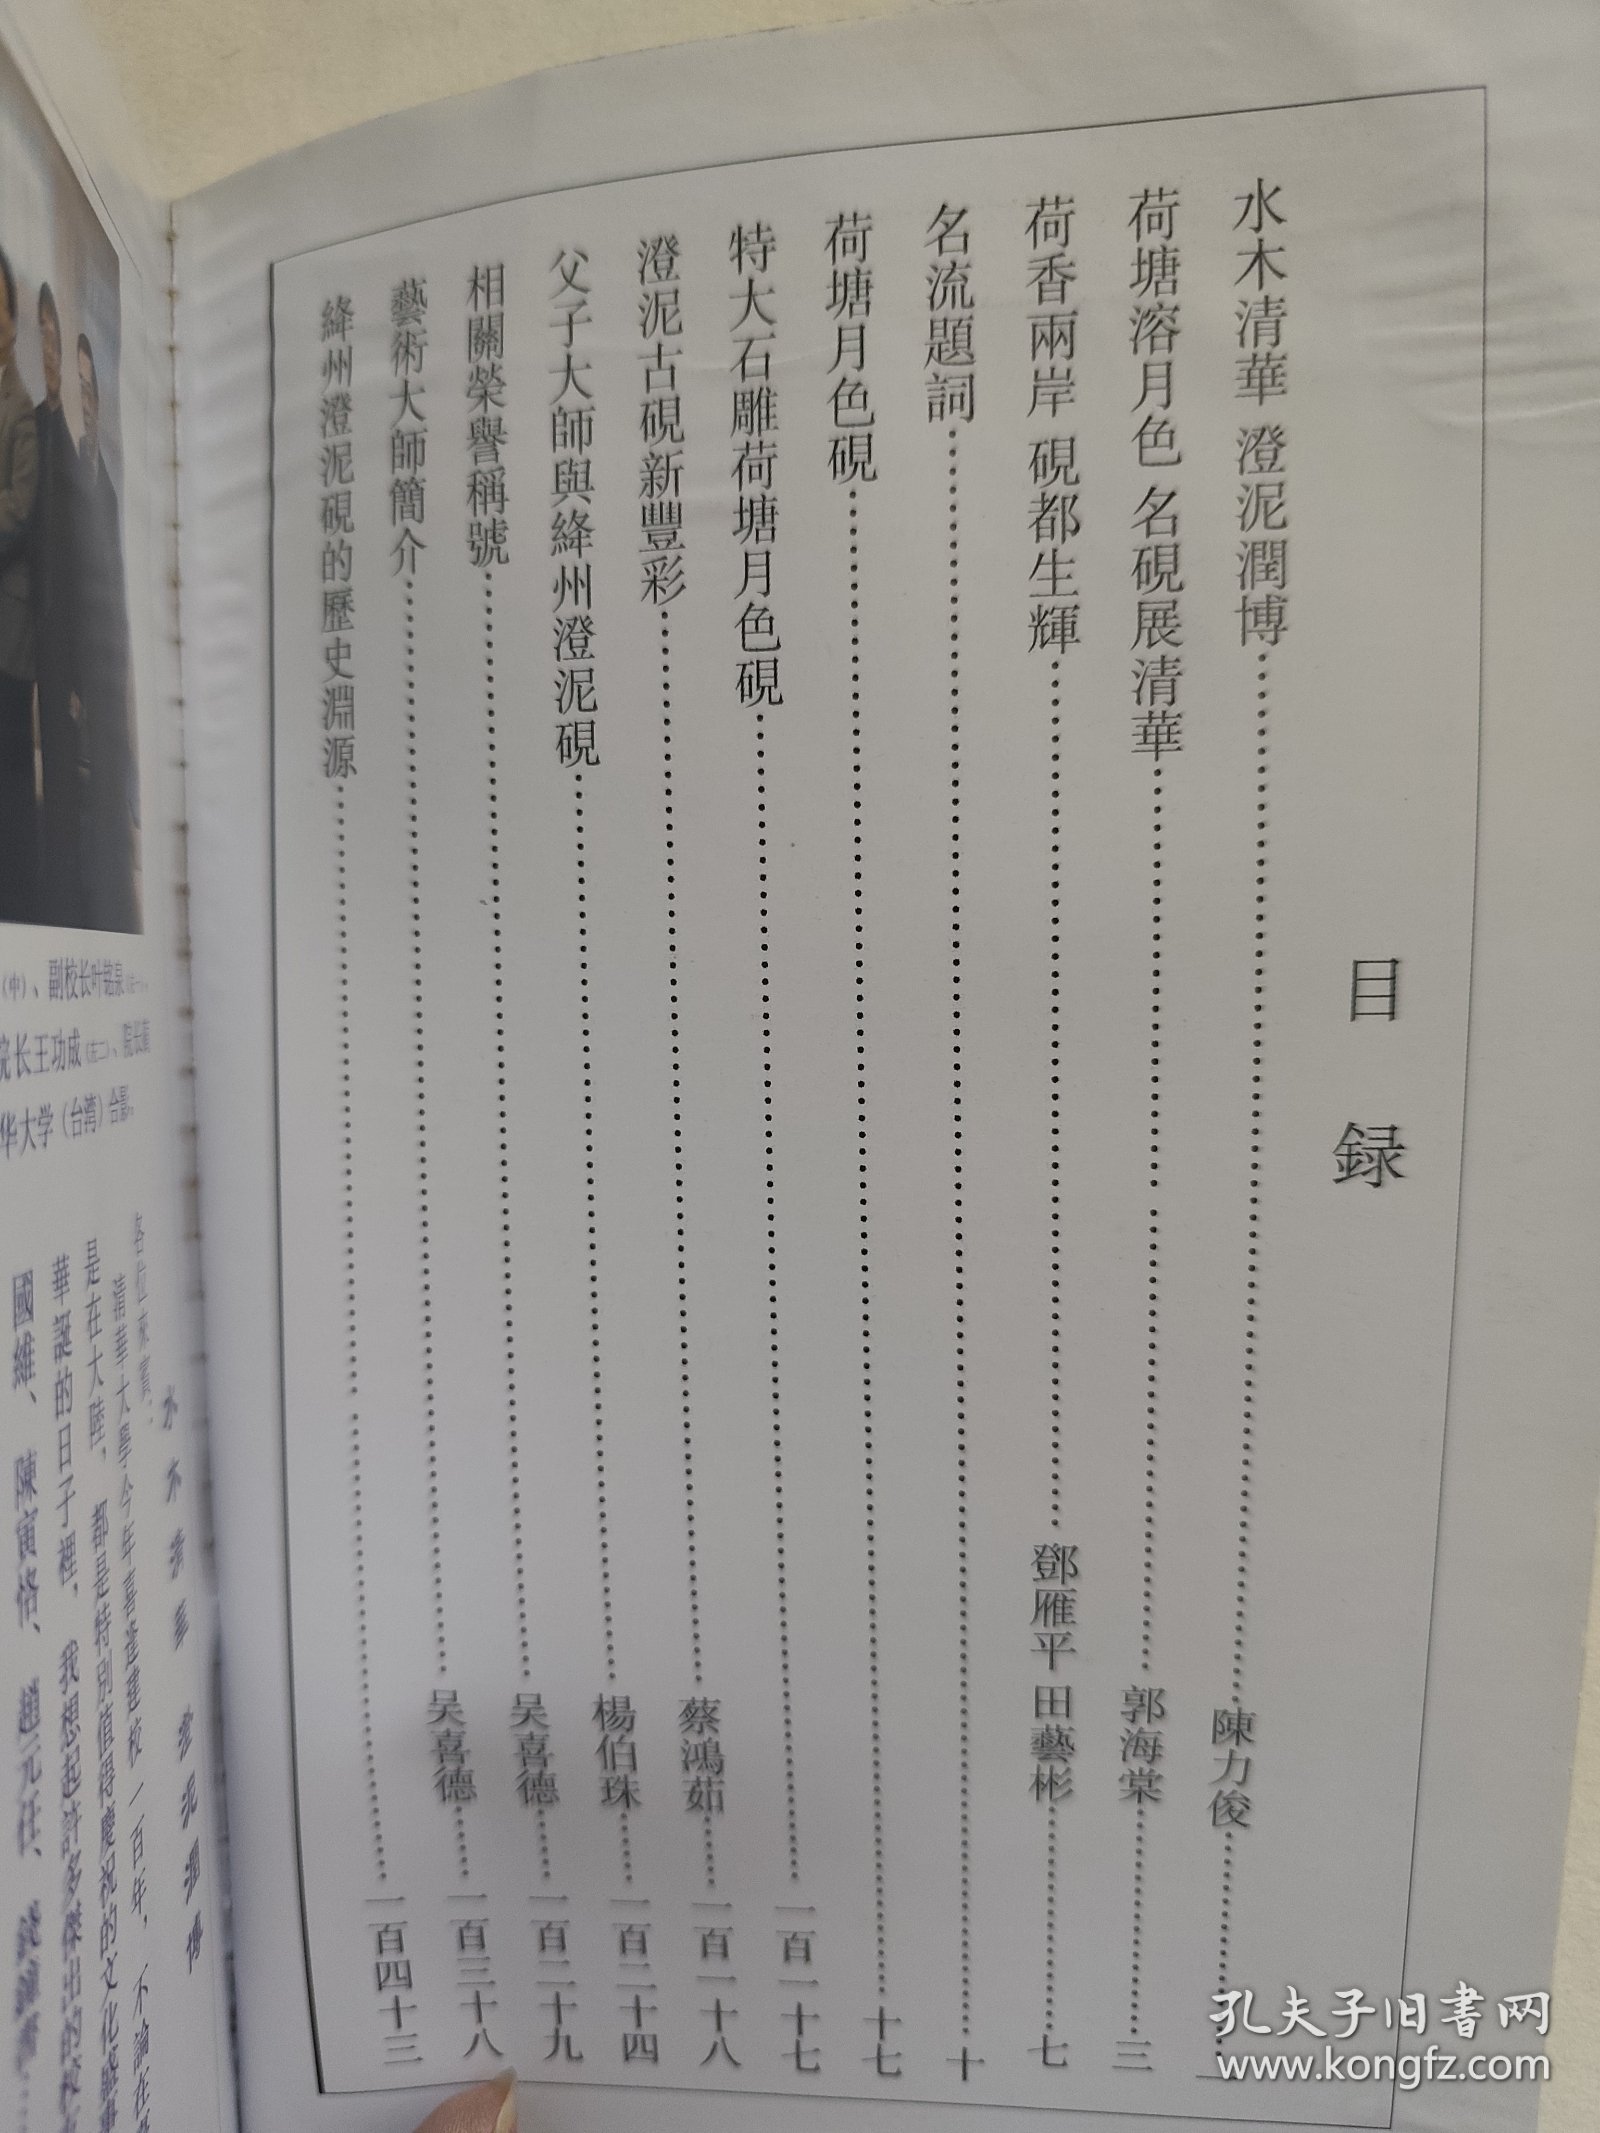 目録
水木清華 澄泥潤博……陳力俊……一
荷塘溶月色 名硯展清華……郭海棠……三
荷香兩岸 硯都生輝……鄧雁平 田藝彬……七
名流題詞……十
荷塘月色硯……十七
特大石雕荷塘月色硯……一百一十七
澄泥古硯新豐彩……蔡鴻茹……一百一十八
父子大師與絳州澄泥硯……楊伯珠……一百二十四
相關榮譽稱號……吴喜德……一百二十九
藝術大師簡介……吴喜德……一百三十八
絳州澄泥硯的歷史淵源……一百四十三
（中）、副校长叶铭泉
院长王功成（左二）、院长
华大学（台湾）合影。
水木清華 澄泥潤博
各位來賓：
清華大學今年喜逢建校一百年，不論在
是在大陸，都是特別值得慶祝的文化
華誕的日子裡，我想起許多傑出的校
國維、陳寅恪、趙元任、
孔夫子旧書网
www.kongfz.com